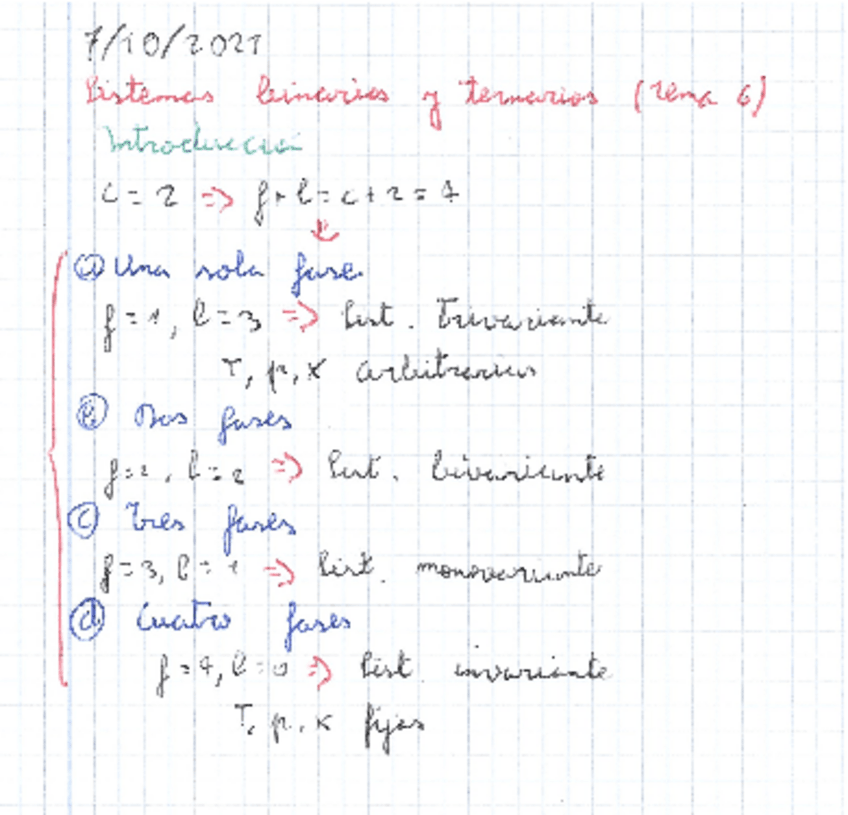 7/10/2021
Sistemas binarios y ternarios (Tema 6)
Introducció
c = 2 ⇒ f + l = c + 2 = 4
ⓐ Una sola fase
f = 1, l = 3 ⇒ Sist. Trivariante
T, p, x arbitrarios
ⓑ Dos fases
f = 2, l = 2 ⇒ Sist. bivariante
ⓒ Tres fases
f = 3, l = 1 ⇒ Sist. monovariante
ⓓ Cuatro fases
f = 4, l = 0 ⇒ Sist. invariante
T, p, x fijos